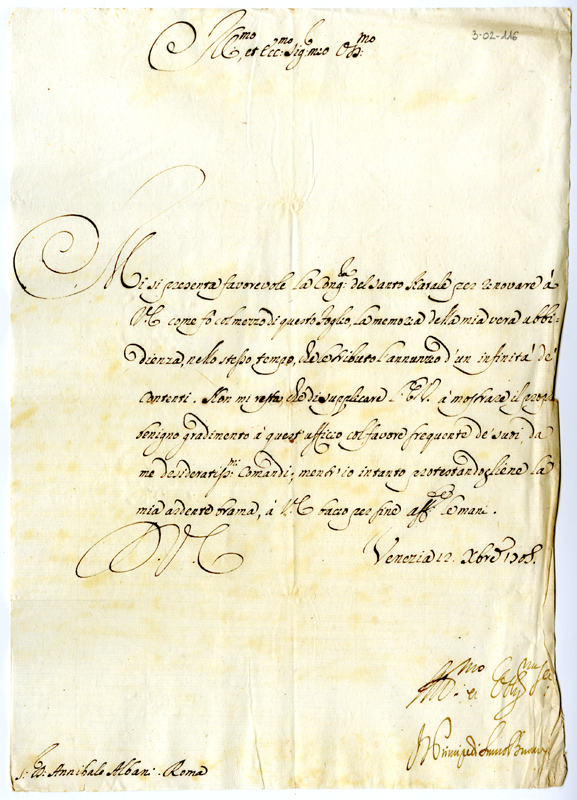 3-02-116
Ill.mo et Ecc.mo Sig.r mio Oss.mo
Mi si presenta favorevole la Cong.ra del Santo Natale per renovare à
V.E. come fò col mezzo di questo foglio, la memoria della mia vera ubbi-
dienza, nello stesso tempo, che le tributo l'annunzio d'un infinità de'
contenti. Non mi resta, che di supplicare l'E.V. à mostrare il
benigno gradimento à quest'uffizio col favore frequente de' suoi, da
me desideratiss.mi Comandi; mentr'io intanto protestandogliene la
mia ardente brama, à V.E. baccio per fine aff. le mani.
D. V. E.
Venezia 12. Xbre 1708.
S.r D. Annibale Albani. Roma